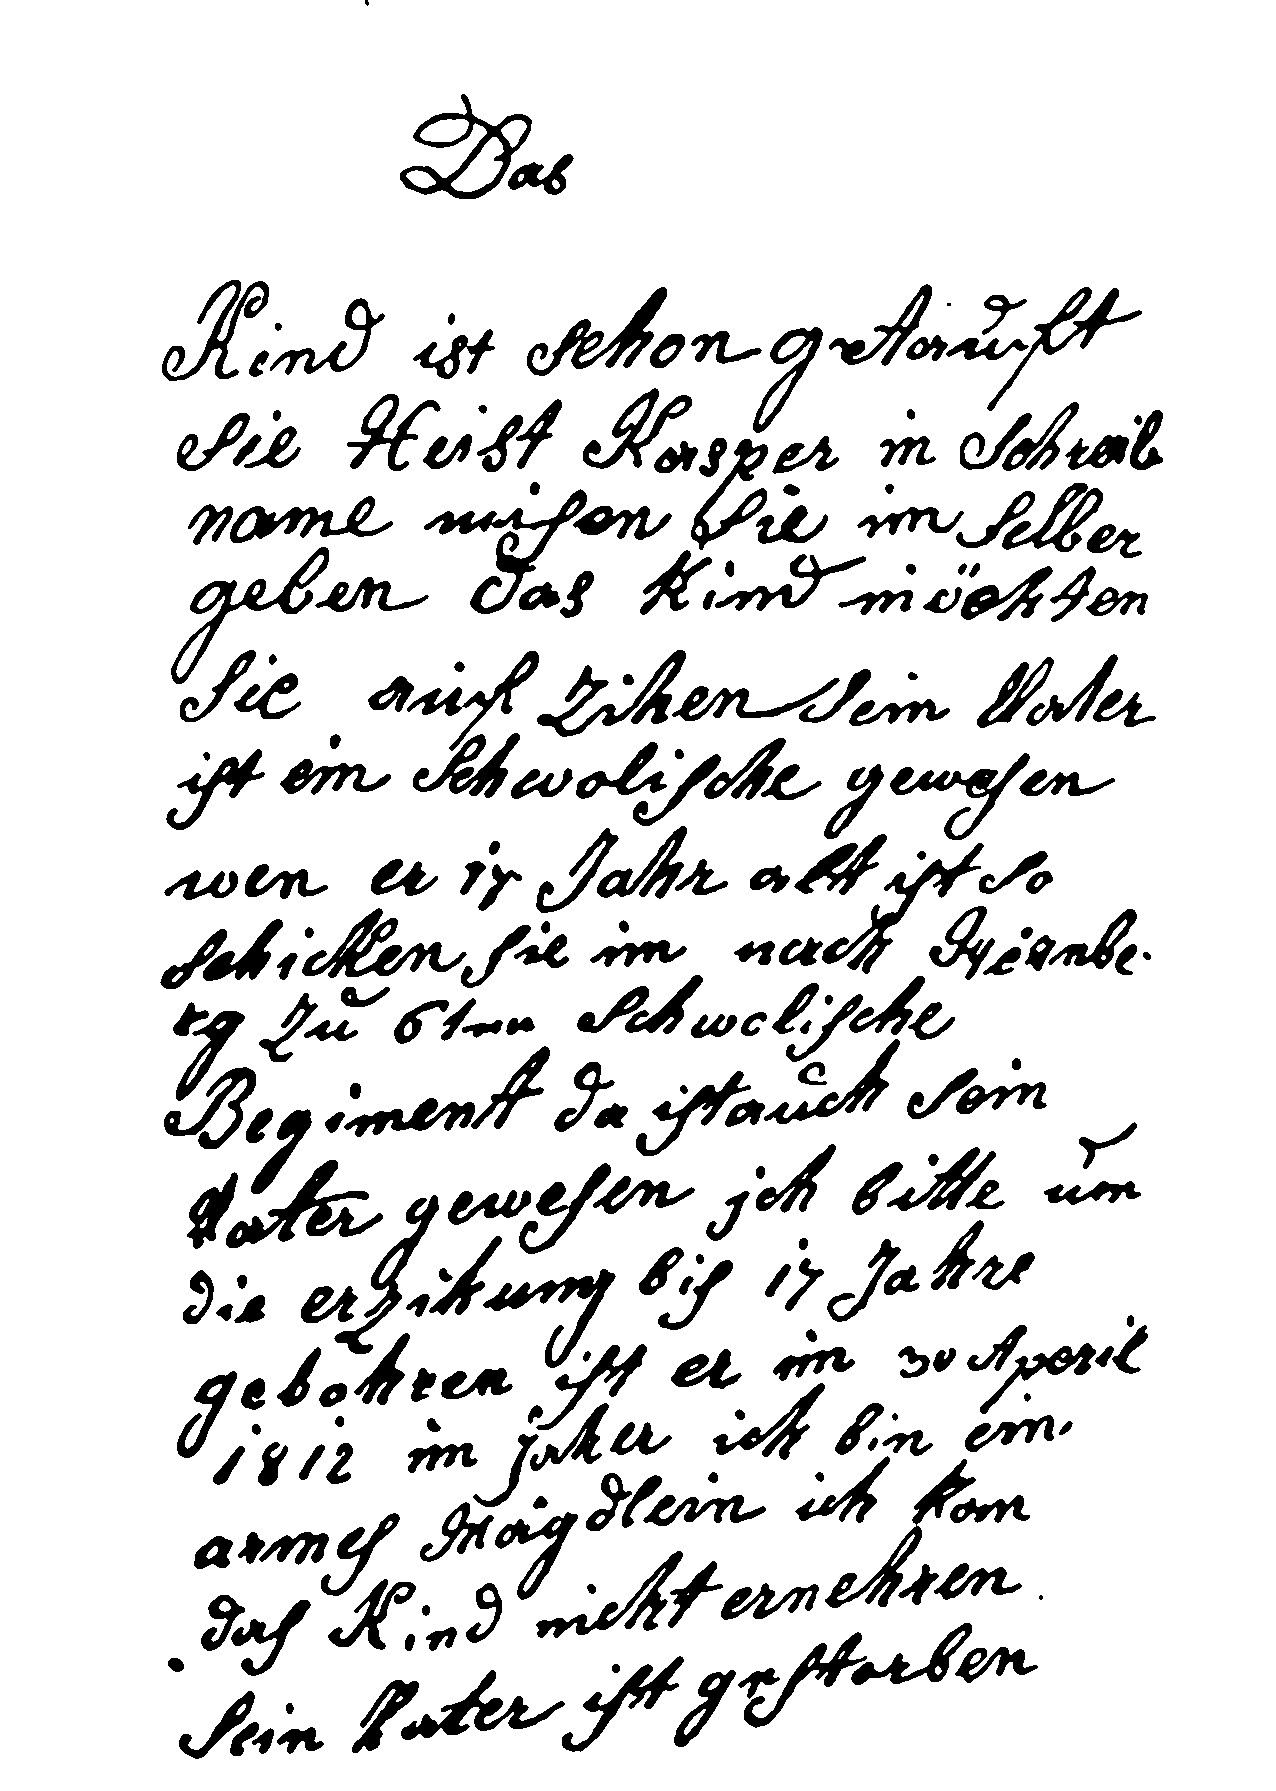 Das
Kind ist schon getauft
Sie Heist Kasper in Schreib
name misen Sie im Selber
geben das Kind möchten
Sie auf Zihen Sein Vater
ist ein Schwolische gewesen
wen er 17 Jahr alt ist so
schicken sie im nach Nienbe-
rg Zu 6ten Schwolische
Begiment da ist auch sein
Vater gewesen ich bitte um
die erzikung bis 17 Jahre
gebohren ist er im 30 Aperil
1812 im Jaher ich bin ein
armes Mägdlein ich kan
das Kind nicht ernehren
Sein Vater ist gestorben